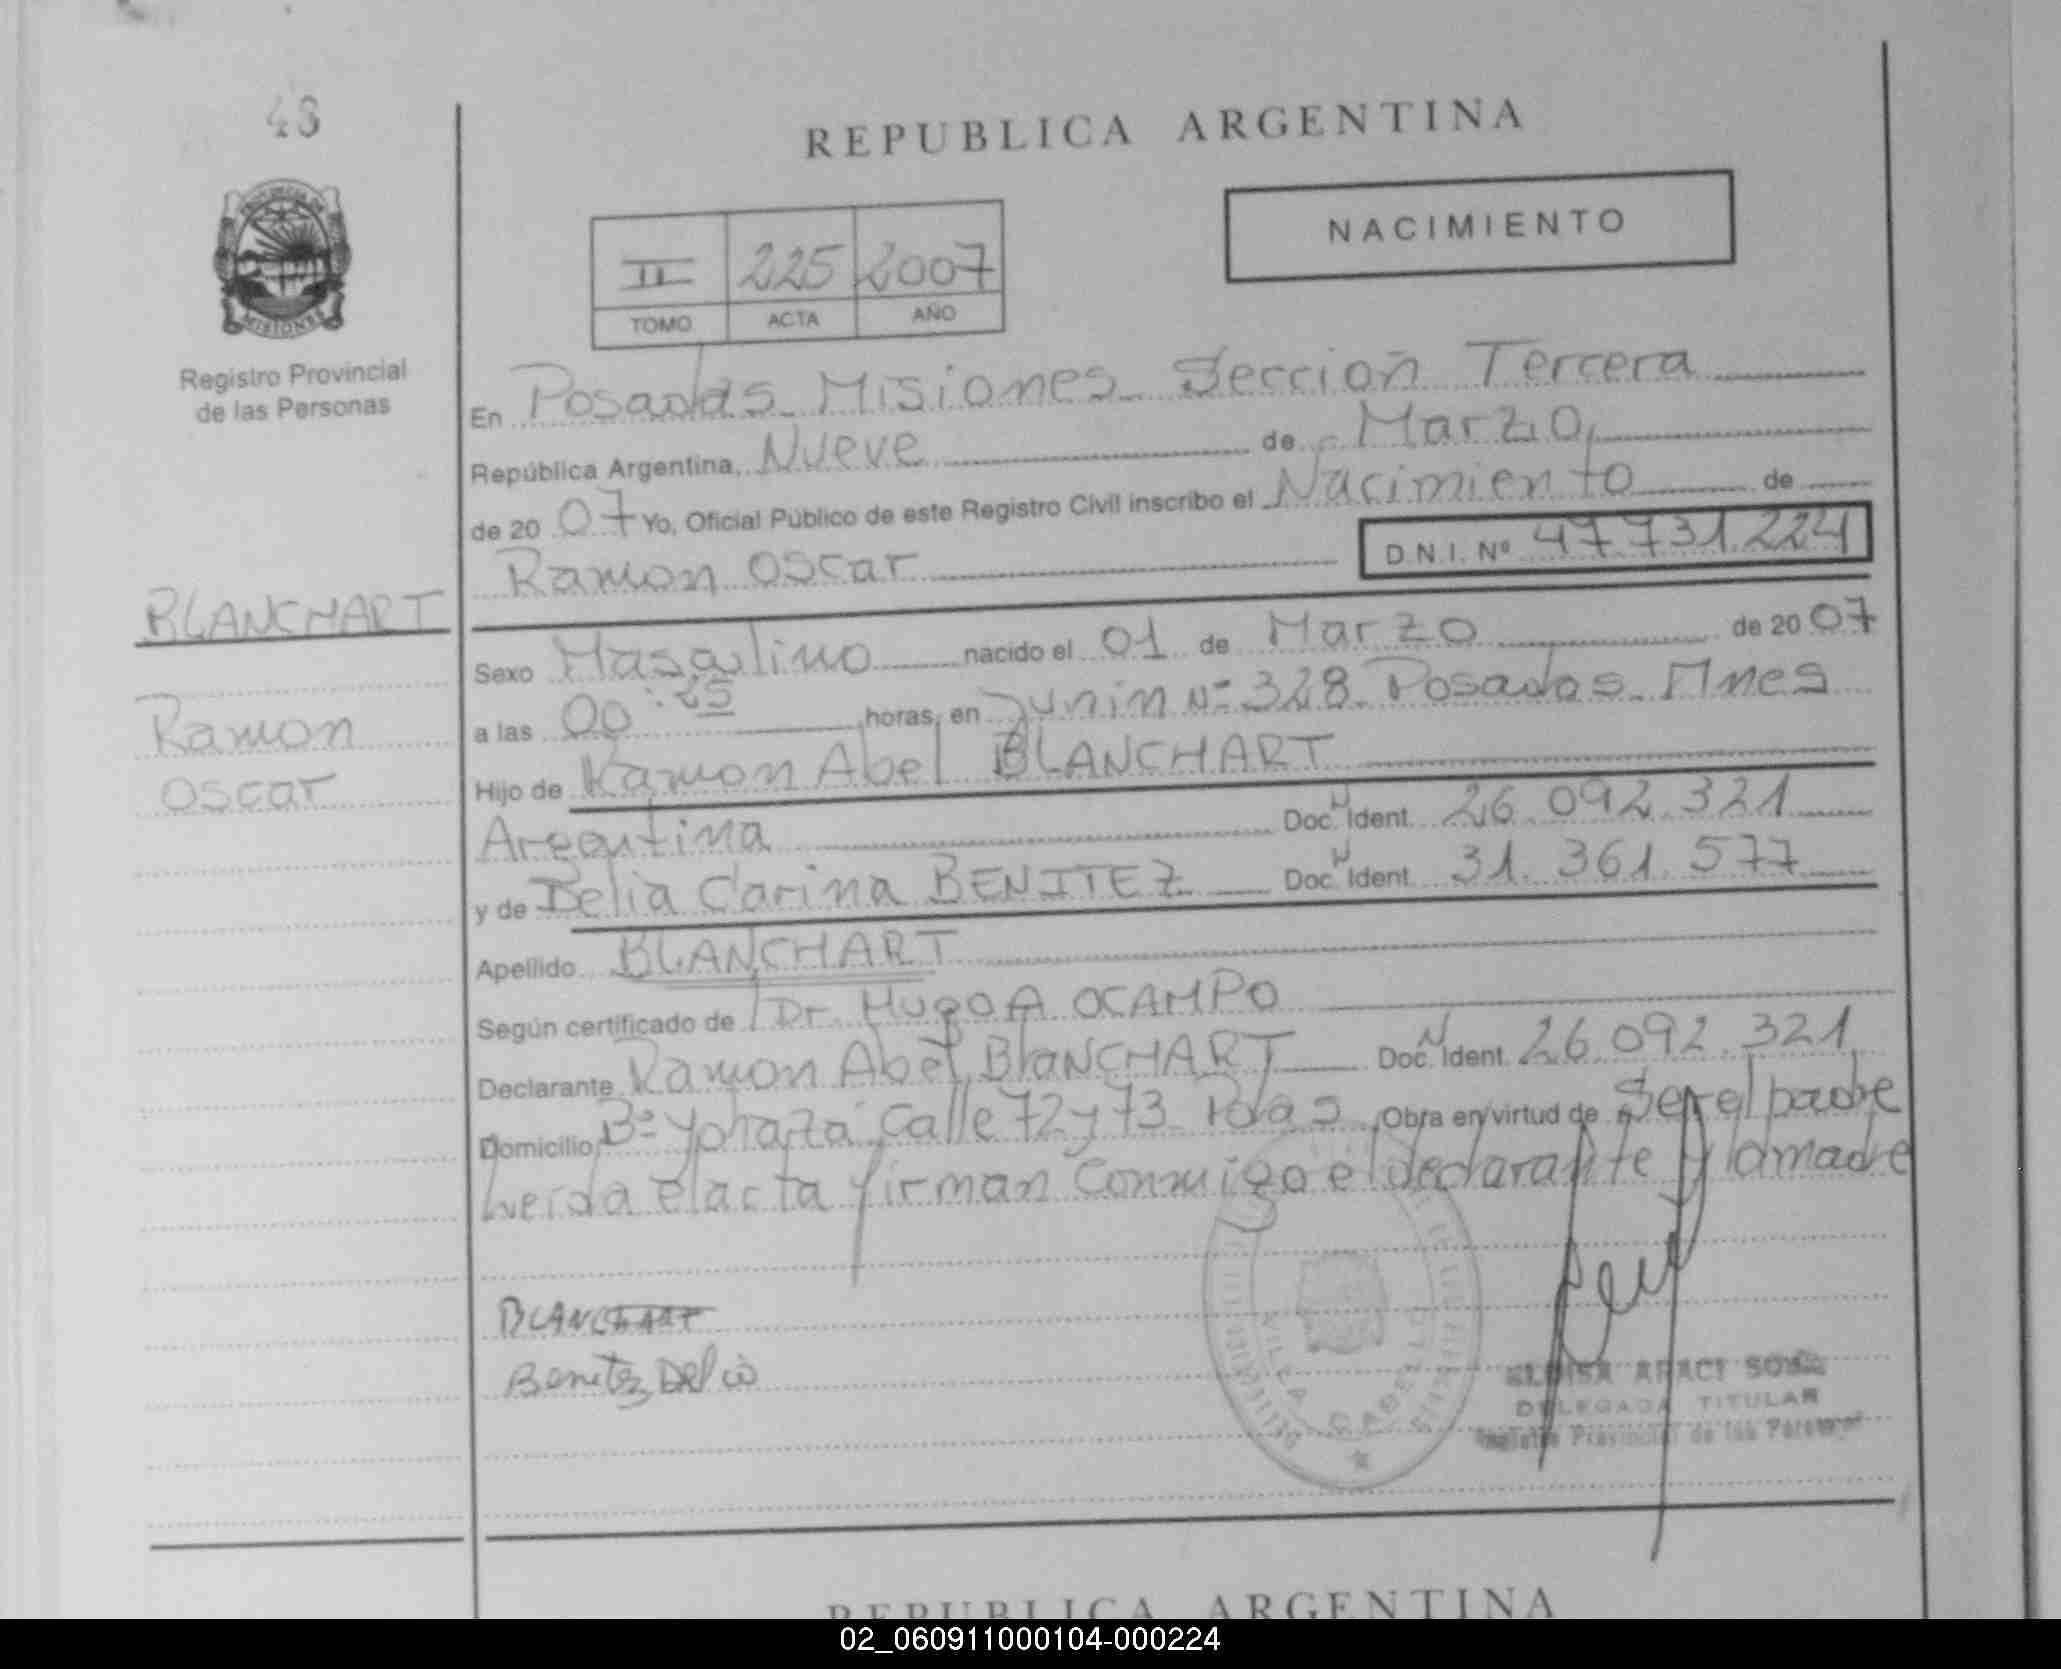 43
REPUBLICA ARGENTINA
NACIMIENTO
II 225 2007
TOMO ACTA AÑO
MISIONES
Registro Provincial
de las Personas
En Posadas Misiones Sección Tercera
República Argentina, Nueve de Marzo
de 20 07 Yo, Oficial Público de este Registro Civil inscribo el Nacimiento de
Ramon Oscar D.N.I. Nº 47731.224
BLANCHART
Ramon
Oscar
Sexo Masculino nacido el 01 de Marzo de 20 07
a las 00:25 horas, en Junin Nº 328 Posadas Mnes
Hijo de Ramon Abel BLANCHART
Argentina Doc. N Ident. 26.092.321
y de Delia Carina BENITEZ Doc. N Ident. 31.361.577
Apellido BLANCHART
Según certificado de Dr. Hugo A OCAMPO
Declarante Ramon Abel BlaNCHART Doc. N Ident. 26.092.321
Domicilio Bº Yohazá Calle 72 y 73 Pdas Obra en virtud de Ser el padre
Leida el acta firman Conmigo el declarante y la madre
BLANCHART
Benitez Delia
ELOISA ARACI
DELEGADA TITULAR
Registro Provincial de las Personas
REPUBLICA ARGENTINA
02_060911000104-000224